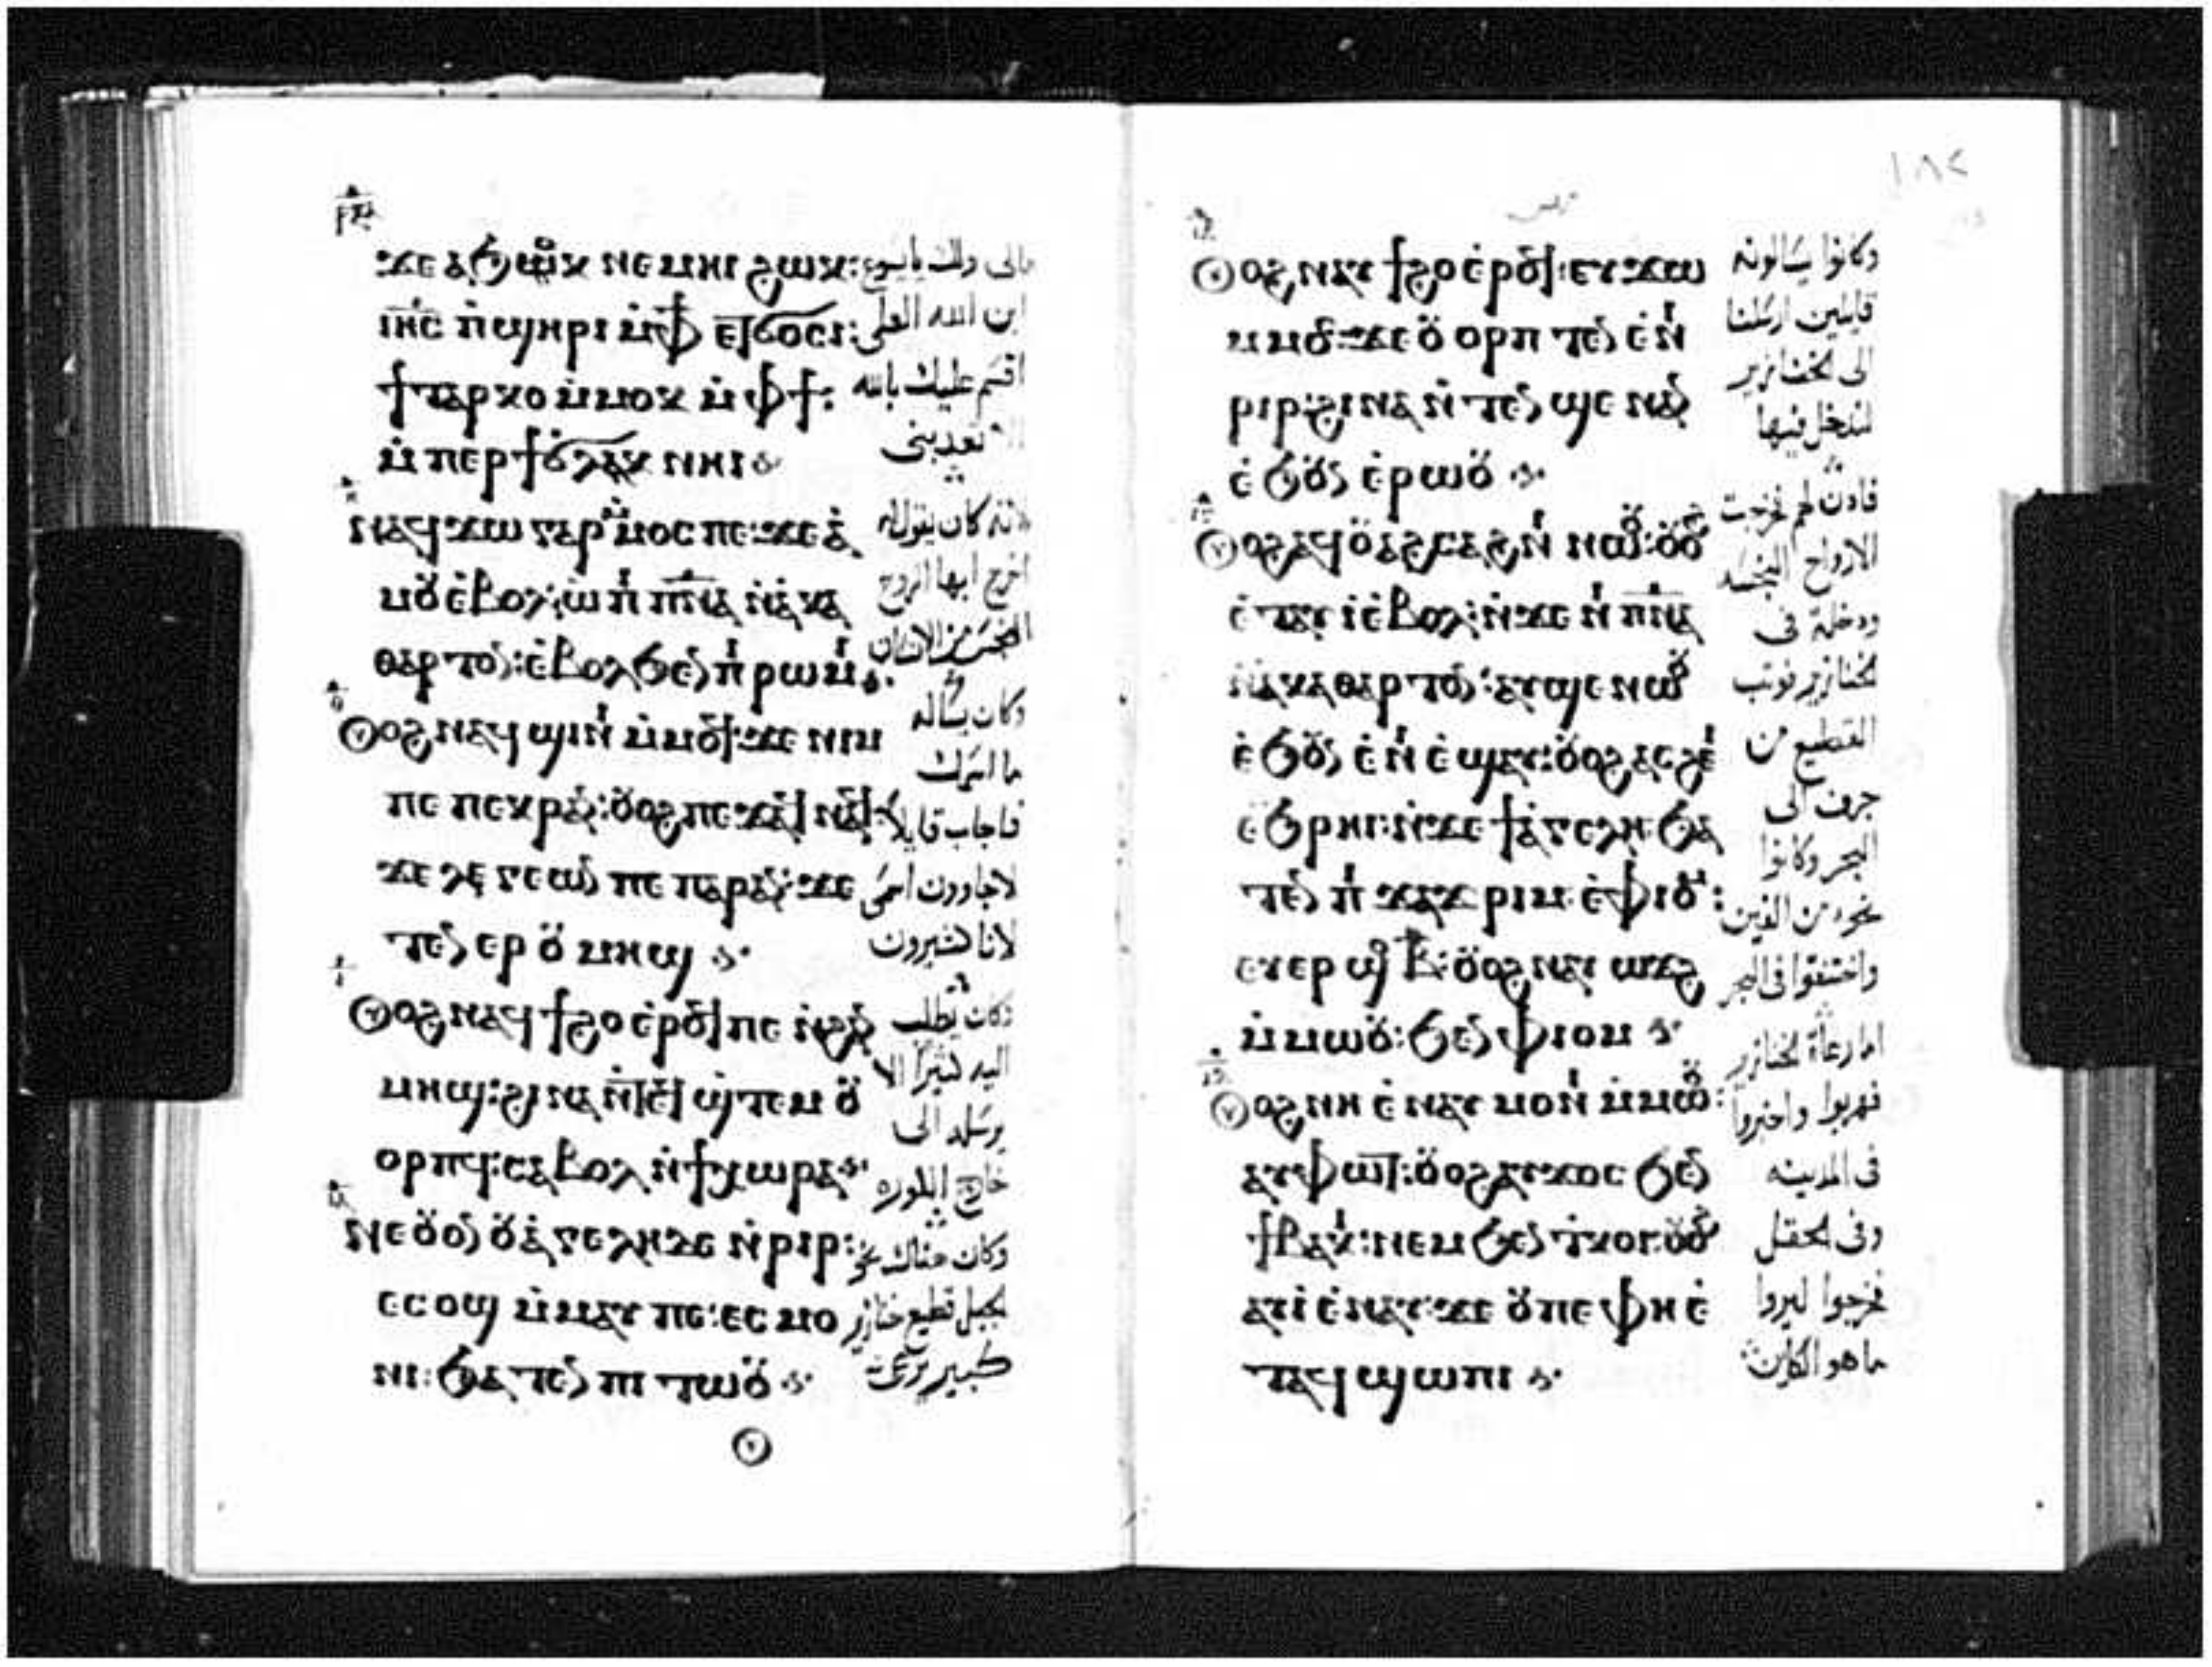 ϫⲉ ⲁϧⲟⲕ ⲛⲉⲙⲏⲓ ϩⲱⲕ:
ⲓⲏ̅ⲥ̅ ⲡ̀ϣⲏⲣⲓ ⲙ̀ⲫϯ ⲉⲧϭⲟⲥⲓ:
ϯⲧⲁⲣⲕⲟ ⲙ̀ⲙⲟⲕ ⲙ̀ⲫϯ:
ⲙ̀ⲡⲉⲣϯ ⲛⲏⲓ
ⲛⲁϥϫⲱ ⲅⲁⲣ ⲙ̀ⲙⲟⲥ ⲡⲉ: ϫⲉ ⲁ̀
ⲙⲟⲩ ⲉ̀ⲃⲟⲗ: ⲱ̀ ⲡⲓ ⲡ̅ⲛ̅ⲁ̅ ⲛ̀ⲁ̀ⲕⲁ
ⲑⲁⲣⲧⲟⲛ: ⲉ̀ⲃⲟⲗ ϧⲉⲛ ⲡⲓ ⲣⲱⲙⲓ
ⲟⲩⲟϩ ⲛⲁϥϣⲓⲛⲓ ⲙ̀ⲙⲟϥ: ϫⲉ ⲛⲓⲙ
ⲡⲉ ⲡⲉⲕⲣⲁⲛ: ⲟⲩⲟϩ ⲡⲉϫⲁϥ ⲛⲁϥ
ϫⲉ ⲗⲉⲅⲉⲱⲛ ⲡⲉ ⲡⲁⲣⲁⲛ: ϫⲉ
ⲧⲉⲛ ⲉⲣ ⲟⲩ ⲙⲏϣ
ⲟⲩⲟϩ ⲛⲁϥϯϩⲟ ⲉ̀ⲣⲟϥ ⲡⲉ ⲛ̀ϩⲁⲛ
ⲙⲏϣ: ϩⲓⲛⲁ ⲛ̀ⲧⲉϥ ϣ̀ⲧⲉⲙ ⲟⲩ
ⲟⲣⲡϥ: ⲥⲁⲃⲟⲗ ⲛ̀ϯⲭⲱⲣⲁ
ⲛⲉ ⲟⲩⲟⲛ ⲟⲩⲁ̀ⲅⲉⲗⲏ ⲇⲉ ⲛ̀ⲣⲓⲣ:
ⲉⲥⲟϣ ⲙ̀ⲙⲁⲩ ⲡⲉ: ⲉⲥ ⲙⲟ
ⲛⲓ: ϧⲁⲧⲉⲛ ⲡⲓ ⲧⲱⲟⲩ
مالى ولك يا يسوع
ابن الله العلى
اقسم عليك بالله
تعذبنى
لانه كان يقول له
اخرج ايها الروح
النجس من الانسان
وكان يساله
ما اسمك
فاجاب قايلا
لاجاوون اسمى
لانا كثيرون
وكان يطلب
اليه كثيرا الا
يرسله الى
خارج الكوره
وكان هناك نحو
الجبل قطيع خنازير
كبير يرعى
١٨٢
ⲟⲩⲟϩ ⲛⲁⲩϯϩⲟ ⲉ̀ⲣⲟϥ: ⲉⲩϫⲱ
ⲙ̀ⲙⲟⲥ: ϫⲉ ⲟⲩⲟⲣⲡ ⲧⲉⲛ ⲉ̀ⲛⲓ
ⲣⲓⲣ: ϩⲓⲛⲁ ⲛ̀ⲧⲉⲛ ϣⲉ ⲛⲁⲛ
ⲉ̀ϧⲟⲩⲛ ⲉ̀ⲣⲱⲟⲩ
ⲟⲩⲟϩ ⲁϥⲟⲩⲁϩⲥⲁϩⲛⲓ ⲛⲱⲟⲩ: ⲟⲩⲟϩ
ⲉ̀ⲧⲁⲩⲓ̀ ⲉ̀ⲃⲟⲗ: ⲛ̀ϫⲉ ⲛⲓ ⲡ̅ⲛ̅ⲁ̅
ⲛ̀ⲁⲕⲁⲑⲁⲣⲧⲟⲛ: ⲁⲩϣⲉ ⲛⲱⲟⲩ
ⲉ̀ϧⲟⲩⲛ ⲉ̀ⲛⲓ ⲉ̀ϣⲁⲩ: ⲟⲩⲟϩ ⲁⲥϩⲉⲓ
ⲉ̀ϧⲣⲏⲓ: ⲛ̀ϫⲉ ϯⲁ̀ⲅⲉⲗⲏ: ϧⲁ
ⲧⲉⲛ ⲡⲓ ϫⲁϫⲣⲓⲙ ⲉ̀ⲫⲓⲟⲙ:
ⲉⲩⲉⲣ ϣⲟ ⲃ̅: ⲟⲩⲟϩ ⲛⲁⲩ ⲱϫϩ
ⲙ̀ⲙⲱⲟⲩ: ϧⲉⲛ ⲫⲓⲟⲙ
ⲟⲩⲟϩ ⲛⲏ ⲉ̀ⲛⲁⲩ ⲙⲟⲛⲓ ⲙ̀ⲙⲱⲟⲩ:
ⲁⲩⲫⲱⲧ: ⲟⲩⲟϩ ⲁⲩϫⲟⲥ ϧⲉⲛ
ϯⲃⲁⲕⲓ: ⲛⲉⲙ ϧⲉⲛ ⲧ̀ⲕⲟⲓ: ⲟⲩⲟϩ
ⲁⲩⲓ̀ ⲉ̀ⲛⲁⲩ: ϫⲉ ⲟⲩ ⲡⲉ ⲫⲏ ⲉ̀
ⲧⲁϥϣⲱⲡⲓ
وكانوا يسالونه
قايلين ارسلنا
الى الخنازير
لندخل فيها
فاذن لهم فخرجت
الارواح النجسه
ودخلة فى
الخنازير فوثب
القطيع من
جرف الى
البحر وكانوا
نحو من الفين
واختنقوا فى البحر
اما رعاة الخنازير
فهربوا واخبروا
فى المدينه
وفى الحقل
فخرجوا ليروا
ما هو الكاين